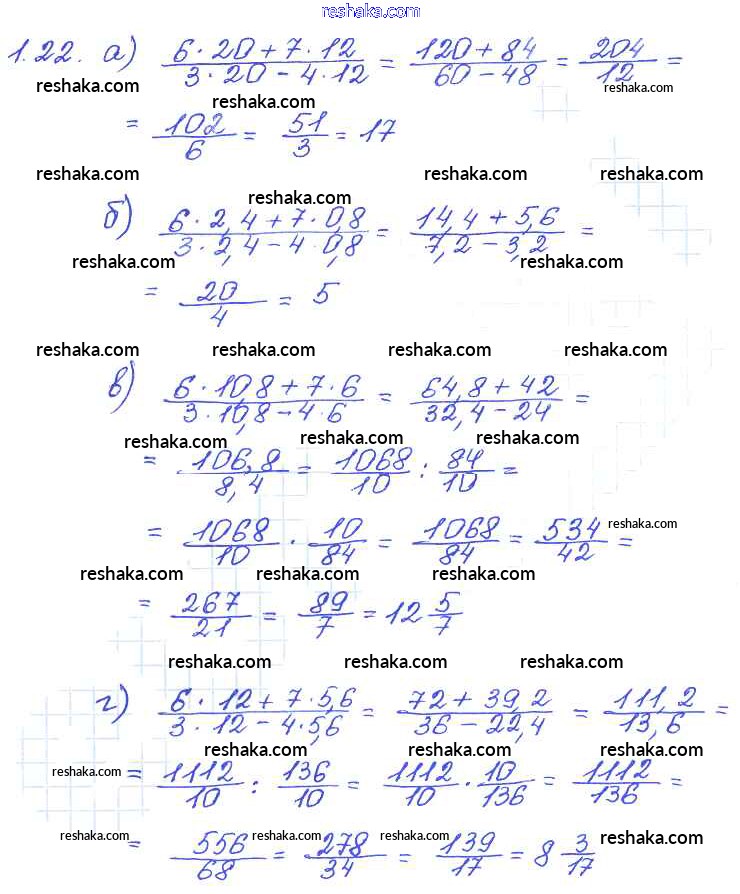 reshaka.com
1.22. а) (6·20+7·12)/(3·20-4·12) = (120+84)/(60-48) = 204/12 =
reshaka.com reshaka.com reshaka.com reshaka.com
= 102/6 = 51/3 = 17
reshaka.com reshaka.com reshaka.com reshaka.com
б) (6·2,4+7·0,8)/(3·2,4-4·0,8) = (14,4+5,6)/(7,2-3,2) =
reshaka.com reshaka.com reshaka.com
= 20/4 = 5
reshaka.com reshaka.com reshaka.com
в) (6·10,8+7·6)/(3·10,8-4·6) = (64,8+42)/(32,4-24) =
reshaka.com reshaka.com reshaka.com
= 106,8/8,4 = 1068/10 : 84/10 =
= 1068/10 · 10/84 = 1068/84 = 534/42 =
reshaka.com
reshaka.com reshaka.com reshaka.com
= 267/21 = 89/7 = 12 5/7
reshaka.com reshaka.com reshaka.com
г) (6·12+7·5,6)/(3·12-4·5,6) = (72+39,2)/(36-22,4) = 111,2/13,6 =
reshaka.com reshaka.com reshaka.com
reshaka.com
= 1112/10 : 136/10 = 1112/10 · 10/136 = 1112/136 =
reshaka.com reshaka.com reshaka.com reshaka.com
= 556/68 = 278/34 = 139/17 = 8 3/17